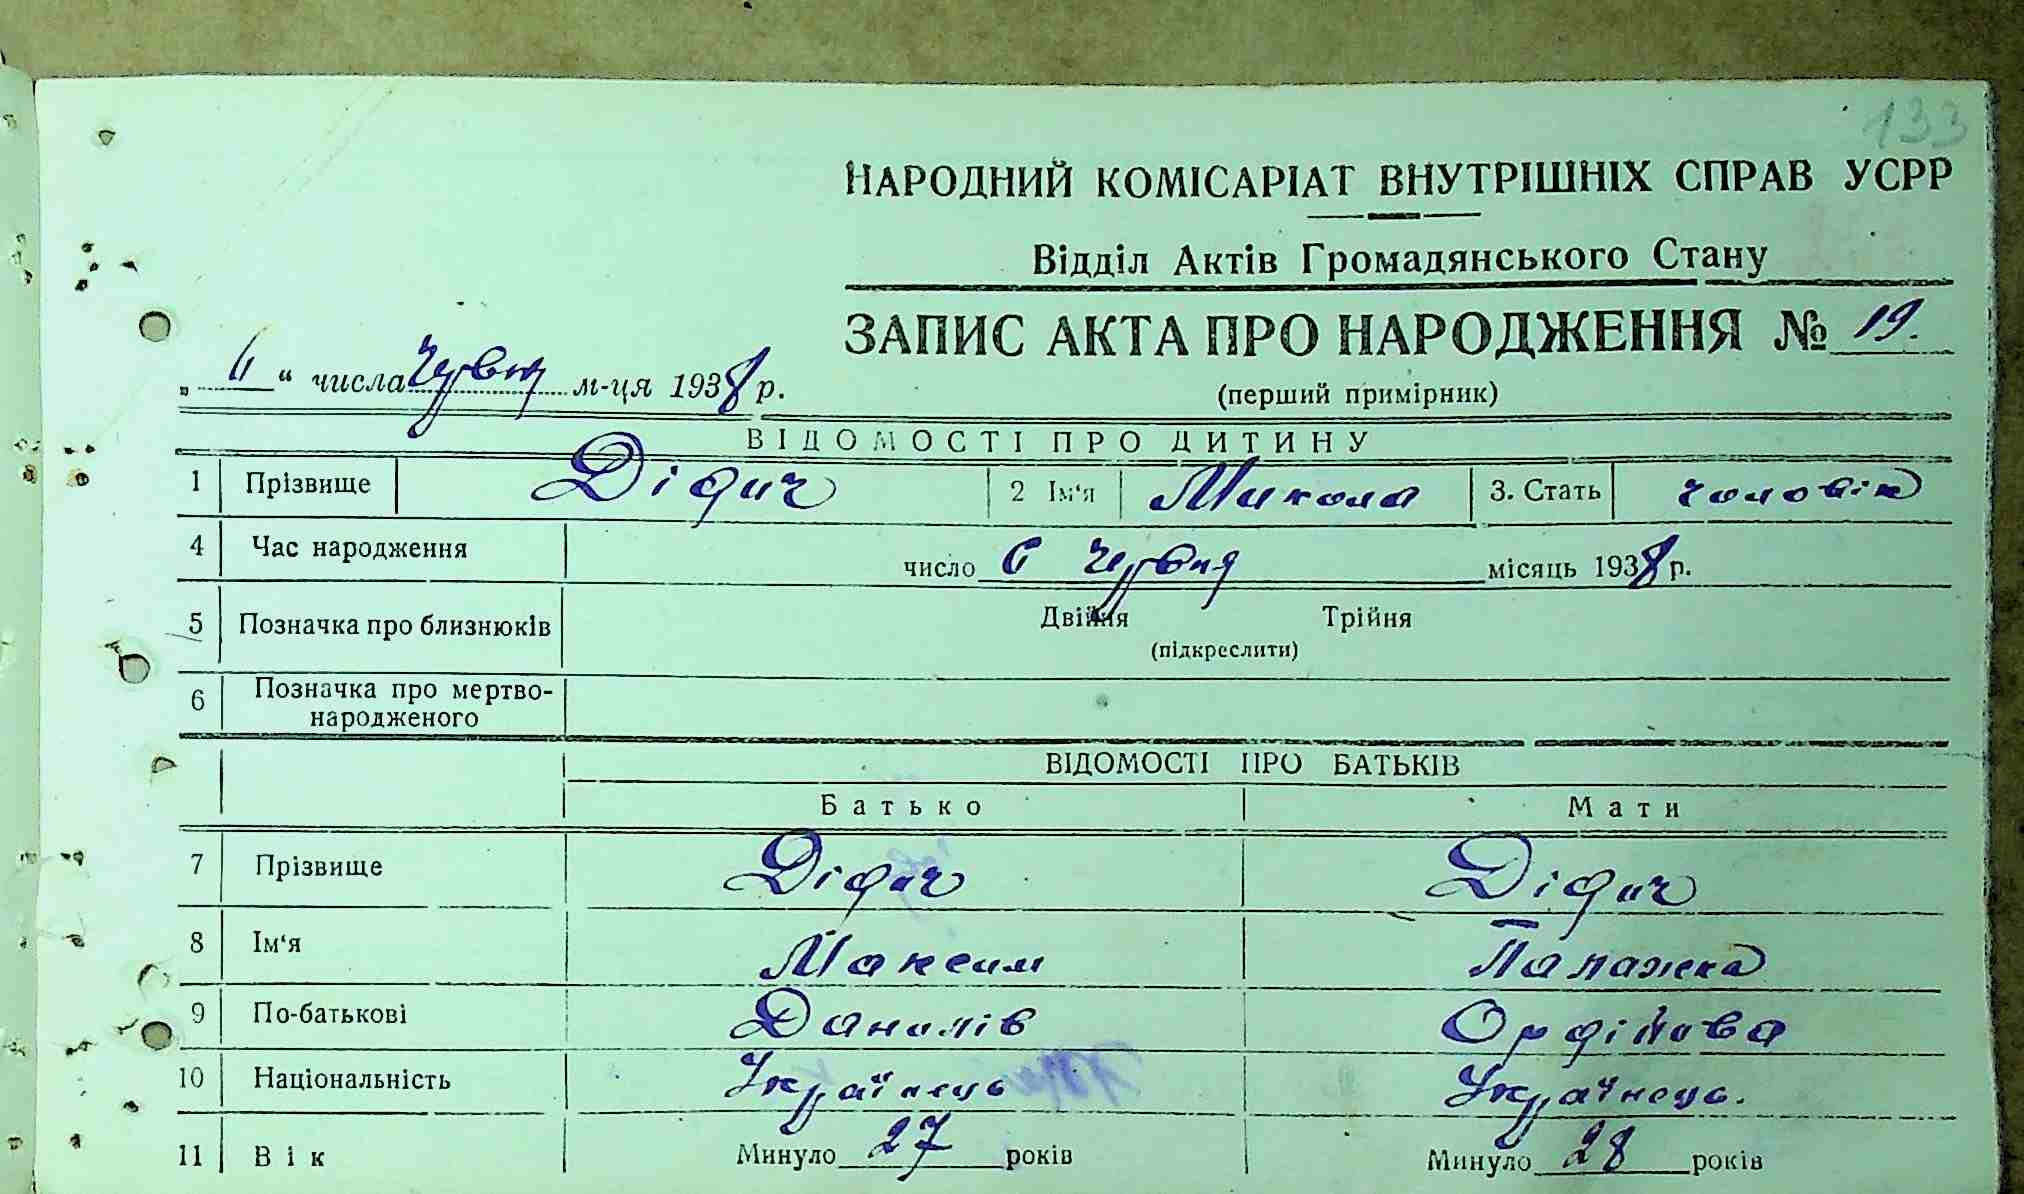 133
НАРОДНИЙ КОМІСАРІАТ ВНУТРІШНІХ СПРАВ УСРР
Відділ Актів Громадянського Стану
ЗАПИС АКТА ПРО НАРОДЖЕННЯ № 19.
„ 11 “ числа Червня м-ця 1938 р.
(перший примірник)
ВІДОМОСТІ ПРО ДИТИНУ
1 Прізвище Дідич 2 Ім'я Микола 3. Стать чоловік
4 Час народження число 6 Червня місяць 1938 р.
5 Позначка про близнюків Двійня Трійня
(підкреслити)
6 Позначка про мертво-
народженого
ВІДОМОСТІ ПРО БАТЬКІВ
Батько Мати
7 Прізвище Дідич Дідич
8 Ім'я Максим Палажка
9 По-батькові Данилів
10 Національність Українець Українець.
11 Вік Минуло 27 років Минуло 28 років